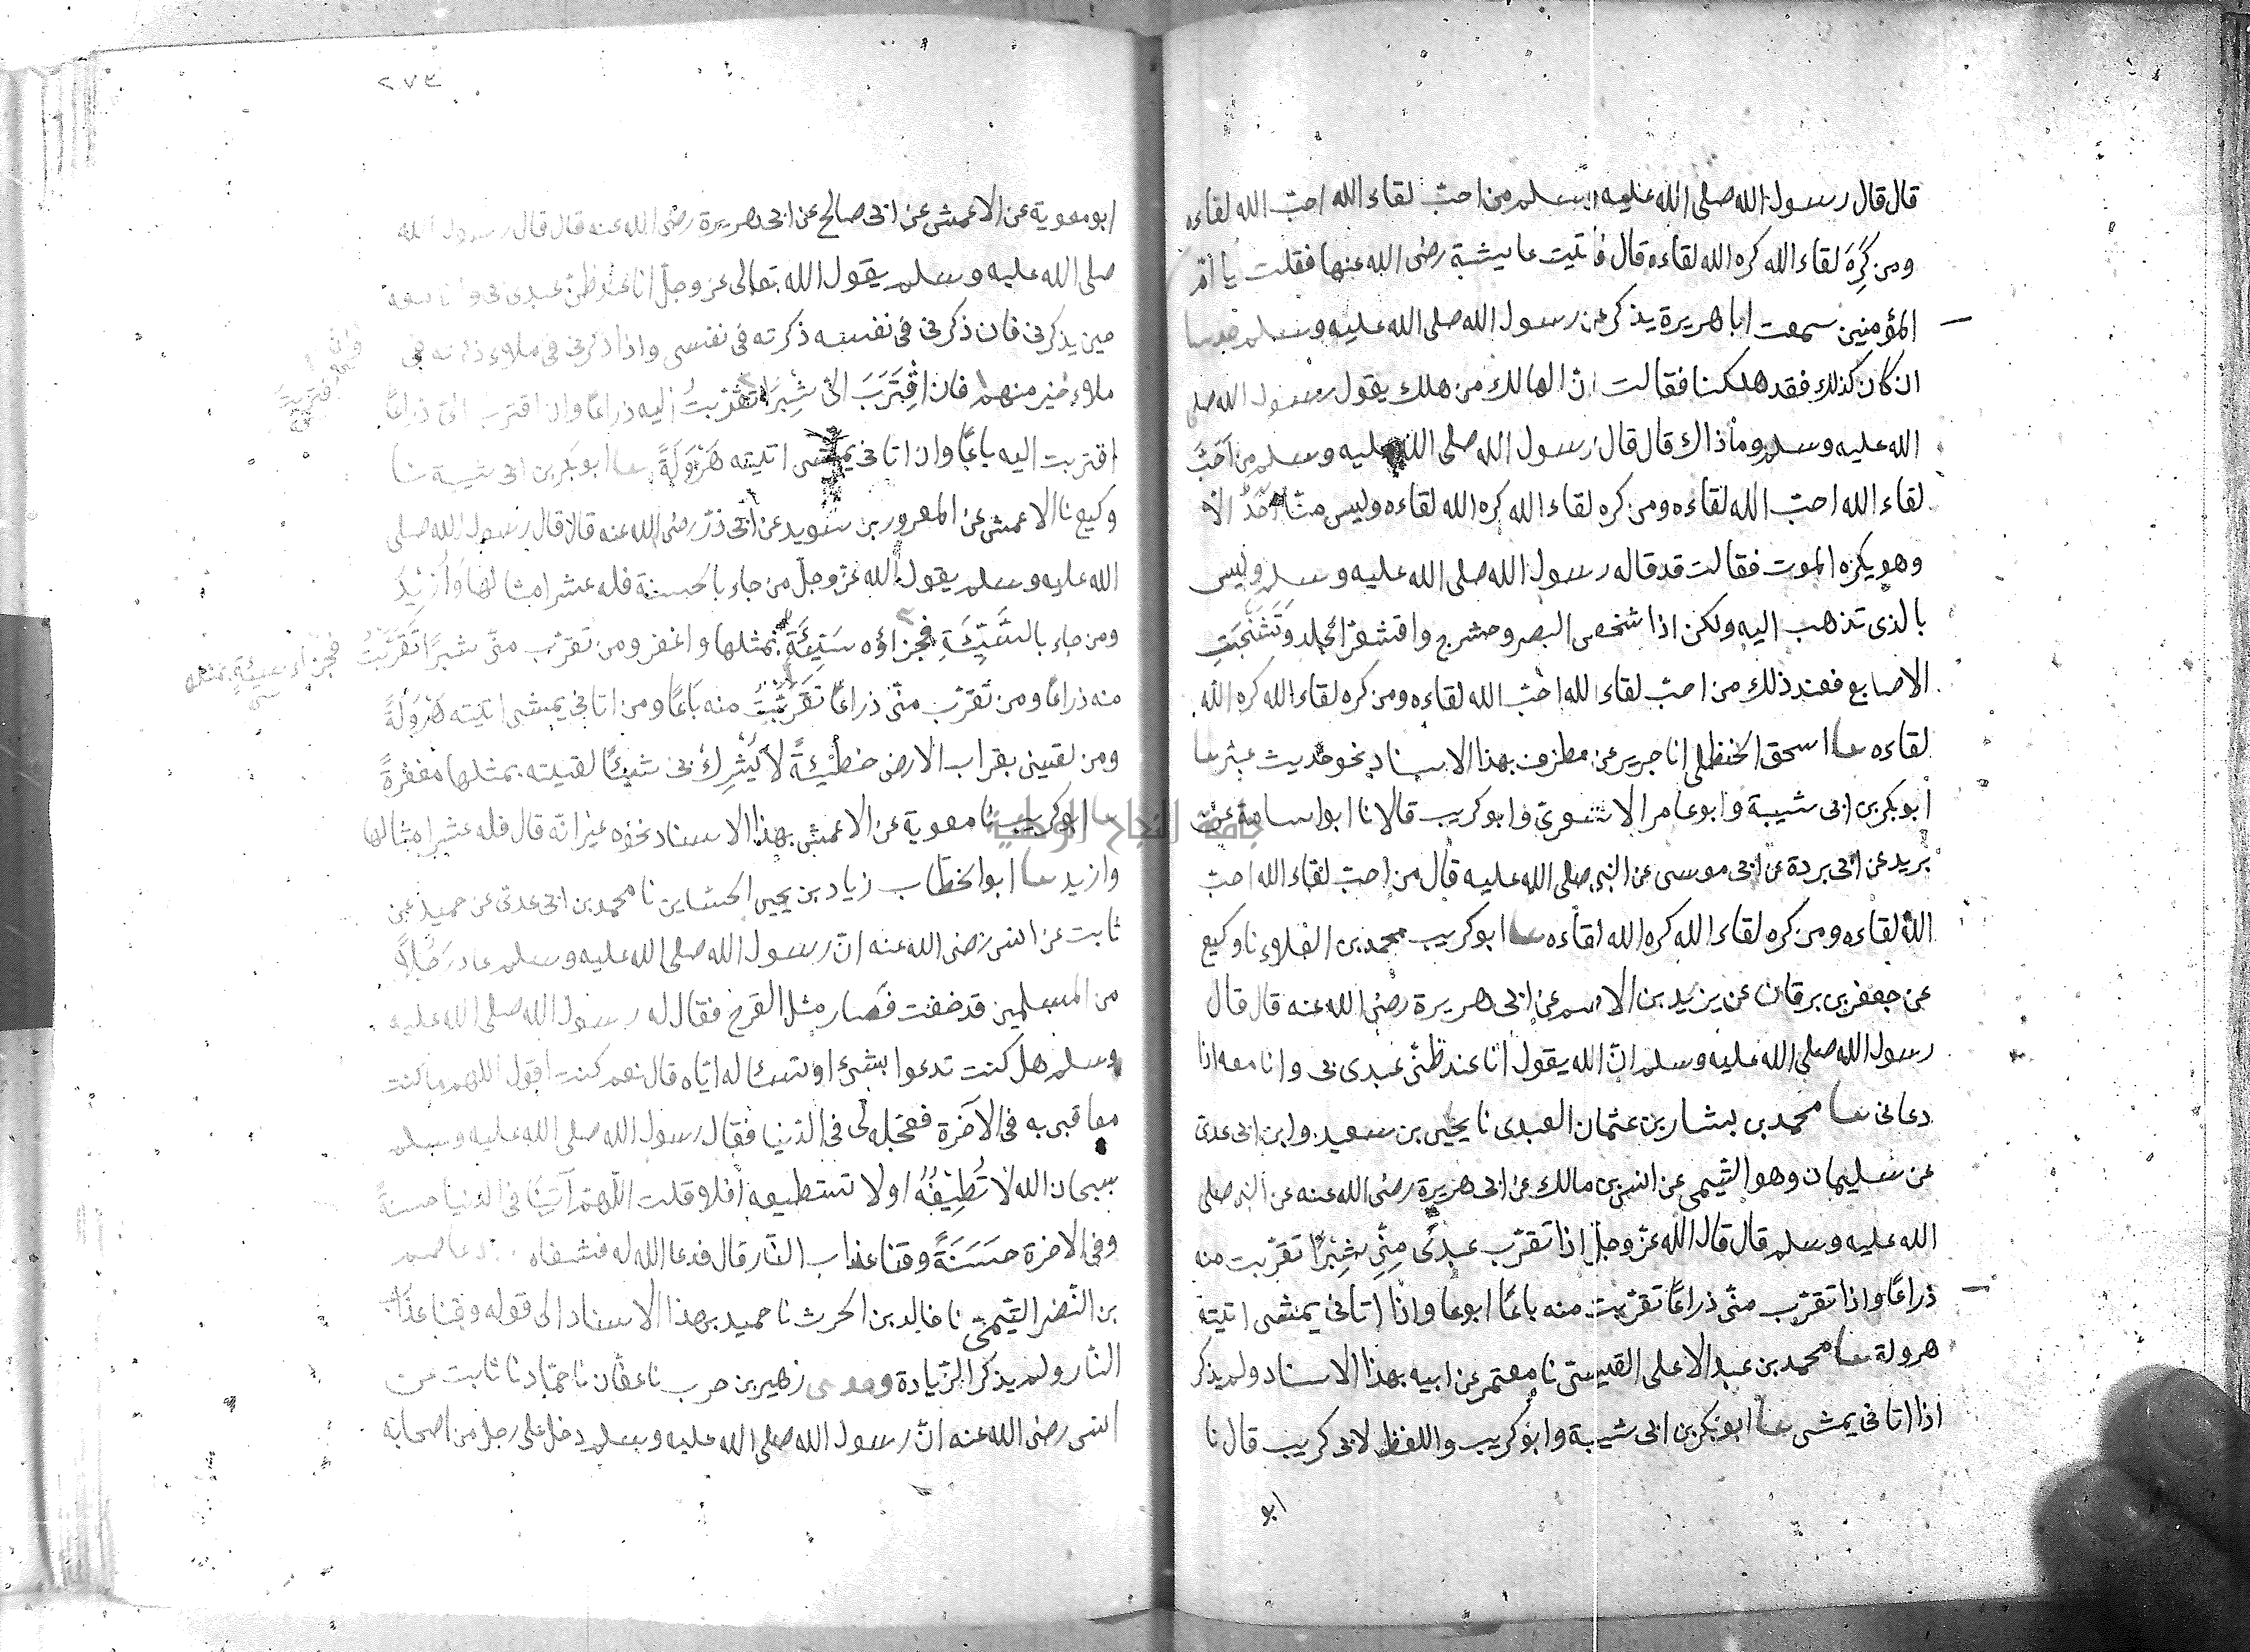 قال قال رسول الله صلى الله عليه وسلم من احبّ لقاء الله احبّ الله لقاءه
ومن كَرِهَ لقاء الله كره الله لقاءه قال فاتيت عايشة رضى الله عنها فقلت يا أمّ
المؤمنين سمعت ابا هريرة يذكر عن رسول الله صلى الله عليه وسلم حديثا
ان كان كذلك فقد هلكنا فقالت انّ الهالك من هلك بقول رسول الله صلى
الله عليه وسلم وما ذاك قال قال رسول الله صلى الله عليه وسلم من اَحَبَّ
لقاء الله احبّ الله لقاءه ومن كره لقاء الله كره الله لقاءه وليس منّا اَحَدٌ الّا
وهو يكره الموت فقالت قد قاله رسول الله صلى الله عليه وسلم وليس
بالذى تذهب اليه ولكن اذا شخص البصر وحشرج واقشعرّ الجلد وَتَشَنَّجَتِ
الاصابع فعند ذلك من احبّ لقاء الله احبّ الله لقاءه ومن كره لقاء الله كره الله
لقاءه حدثنا اسحق الحنظلى انا جرير عن مطرف بهذا الاسناد نحو حديث عبثر حدثنا
ابو بكر بن ابى شيبة وابو عامر الاشعرىّ وابو كريب قالا نا ابو اسامة عن
بريد عن ابى بردة عن ابى موسى عن النبى صلى الله عليه قال من احبّ لقاء الله احبّ
الله لقاءه ومن كره لقاء الله كره الله لقاءه حدثنا ابو كريب محمد بن العلاء نا وكيع
عن جعفر بن برقان عن يزيد بن الاصم عن ابى هريرة رضى الله عنه قال قال
رسول الله صلى الله عليه وسلم انّ الله يقول انا عند ظنّ عبدى بى وانا معه اذا
دعانى حدثنا محمد بن بشار بن عثمان العبدى نا يحيى بن سعيد وابن ابى عدىّ
عن سليمان وهو التّيمى عن انس بن مالك عن ابى هريرة رضى الله عنه عن النبى صلى
الله عليه وسلم قال قال الله عزّ وجلّ اذا تقرّب عبدى مِنِّى شِبْرًا تقرّبت منه
ذراعًا واذا تقرّب منّى ذراعًا تقرّبت منه باعًا او بوعا واذا اتانى يمشى اتيته
هرولة حدثنا محمد بن عبد الاعلى القيسىّ نا معتمر عن ابيه بهذا الاسناد ولم يذكر
اذا اتانى يمشى حدثنا ابو بكر بن ابى شيبة وابو كريب واللفظ لابى كريب قال نا
ابو
٢٧٣
ابو معوية عن الاعمش عن ابى صالح عن ابى هريرة رضى الله عنه قال قال رسول الله
صلى الله عليه وسلم يقول الله تعالى عزّ وجلّ انا عند ظنّ عبدى بى وانا معه
حين يذكرنى فان ذكرنى فى نفسه ذكرته فى نفسى واذا ذكرنى فى ملاء ذكرته فى
ملاء خير منهم فان اقْتَرَبَ الىّ شِبْرًا تقرّبتُ اليه ذراعًا وان اقترب الىّ ذراعًا
اقتربت اليه باعًا وان اتانى يمشى اتيته هَرْوَلَةً حدثنا ابو بكر بن ابى شيبة نا
وكيع نا الاعمش عن المعرور بن سويد عن ابى ذرّ رضى الله عنه قال قال رسول الله صلى
الله عليه وسلم يقول الله عزّ وجلّ من جاء بالحسنة فله عشر امثالها وَاَزِيْدُ
ومن جاء بالسَّيِّئَةِ فجزاؤه سَيِّئَةٌ بمثلها واغفر ومن تقرّب منّى شبرًا تَقَرَّبْتُ
فجزاء سيئةٍ بمثلها
منه ذراعًا ومن تقرّب منّى ذراعًا تَقَرَّبْتُ منه بَاعًا ومن اتانى يمشى اتيته هَرْوَلَةً
ومن لقينى بقراب الارض خطْيْئةً لا يُشْرِكُ بى شيئًا لقيته بمثلها مغفرةً
حدثنا ابو كريب نا معوية عن الاعمش بهذا الاسناد نحوه غير انّه قال فله عشر امثالها
وازيد حدثنا ابو الخطّاب زياد بن يحيى الحسّانى نا محمد بن ابى عدىّ عن حميد عن
ثابت عن انس رضى الله عنه انّ رسول الله صلى الله عليه وسلم عاد رَجُلًا
من المسلمين قد خفت فصار مثل الفرخ فقال له رسول الله صلى الله عليه
وسلم هل كنت تدعوا بشىء او تسئاله ايّاه قال نعم كنت اقول اللهم ما كنت
معاقبى به فى الآخرة فعجّله لى فى الدّنيا فقال رسول الله صلى الله عليه وسلم
سبحان الله لَا تُطِيْقُهُ او لا تستطيعه افلا قلت اللّهمّ آتنَا فى الدّنيا حسنةً
وفى الاخرة حَسَنَةً وقنا عذاب النّار قال فدعا الله له فشفاه حدثنا عاصم
بن النّضر التّيمىّ نا خالد بن الحرث نا حميد بهذا الاسناد الى قوله وقنا عذاب
النّار ولم يذكر الزّيادة وحدثنى زهير بن حرب نا عفّان نا حمّاد نا ثابت عن
انس رضى الله عنه انّ رسول الله صلى الله عليه وسلم دخل على رجل من اصحابه
جامعة النجاح الوطنية